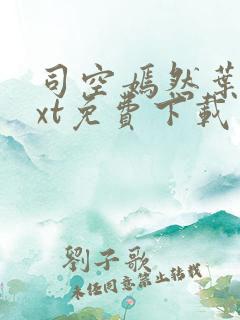 司空嫣然葉
xt免費下載
劉子歌
未經同意禁止轉載